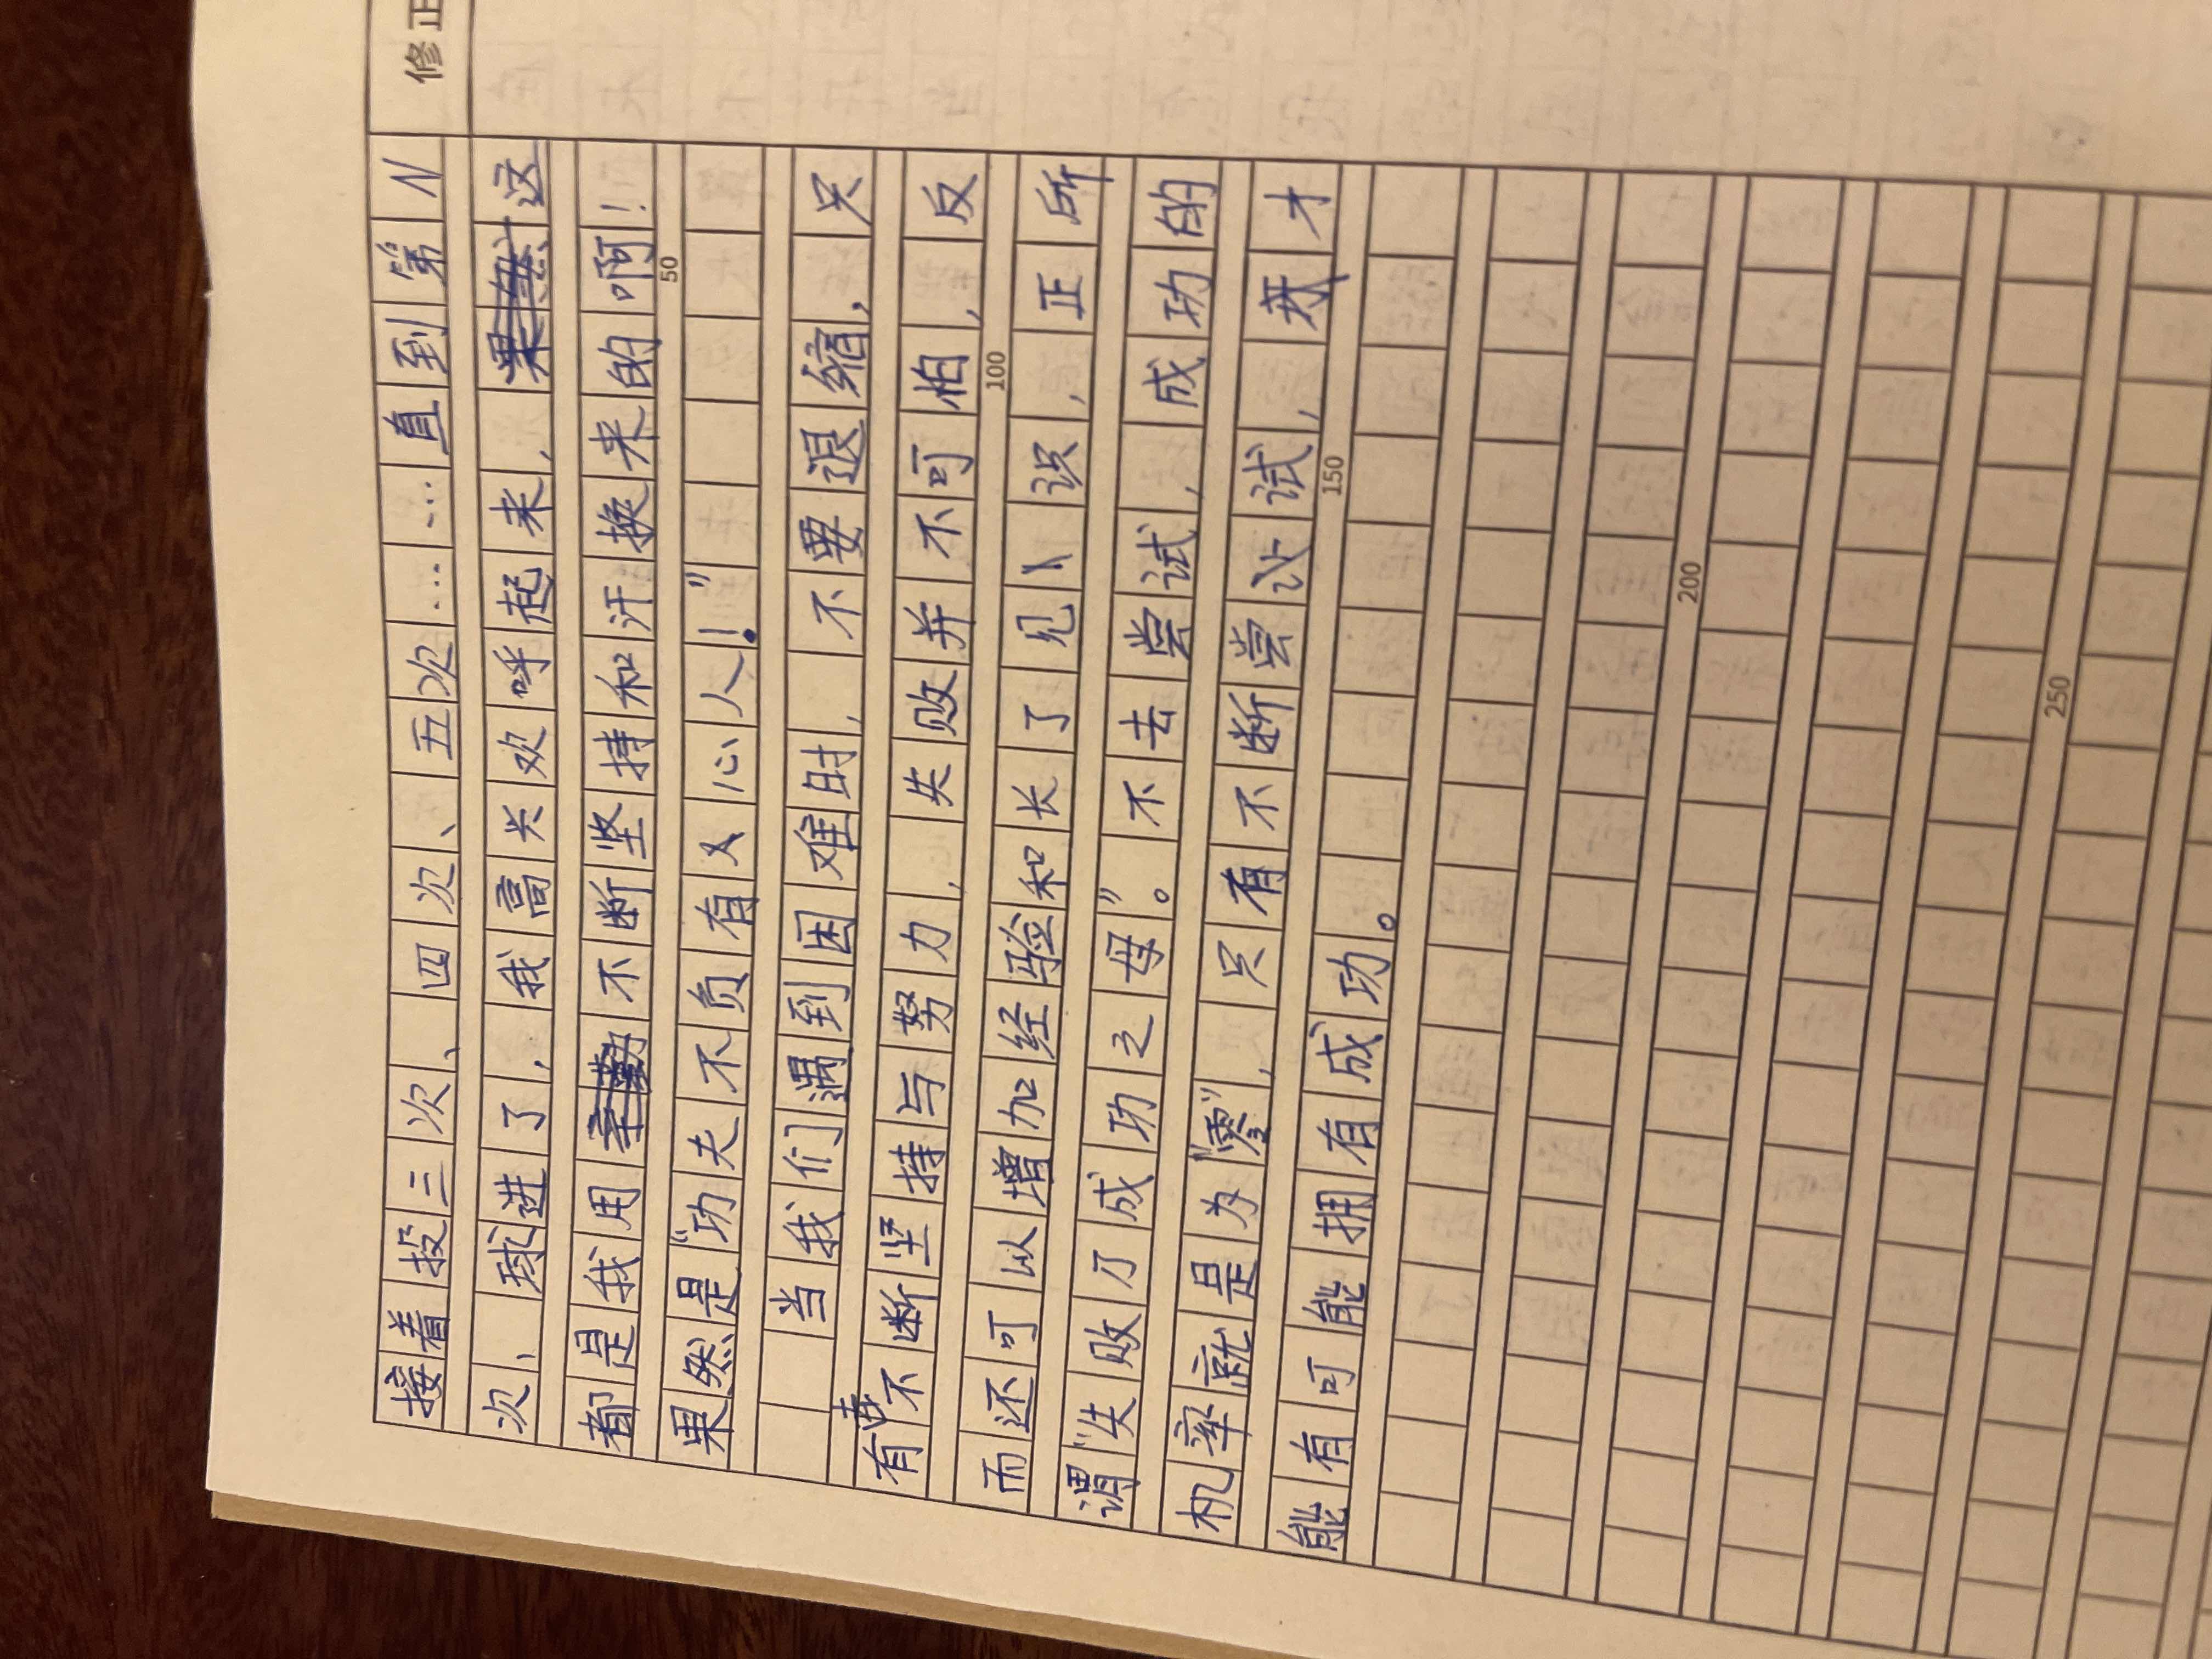 修正
接着投三次、四次、五次……直到第N
次、球进了，我高兴欢呼起来，这
都是我用不断坚持和汗换来的啊！
50
果然是“功夫不负有心人！”
当我们遇到困难时，不要退缩，只
有去不断坚持与努力，失败并不可怕，反
100
而还可以增加经验和长了见识，正所
谓“失败乃成功之母”。不去尝试，成功的
机率就是为“零”，只有不断尝试，才
150
能有可能拥有成功。
200
250